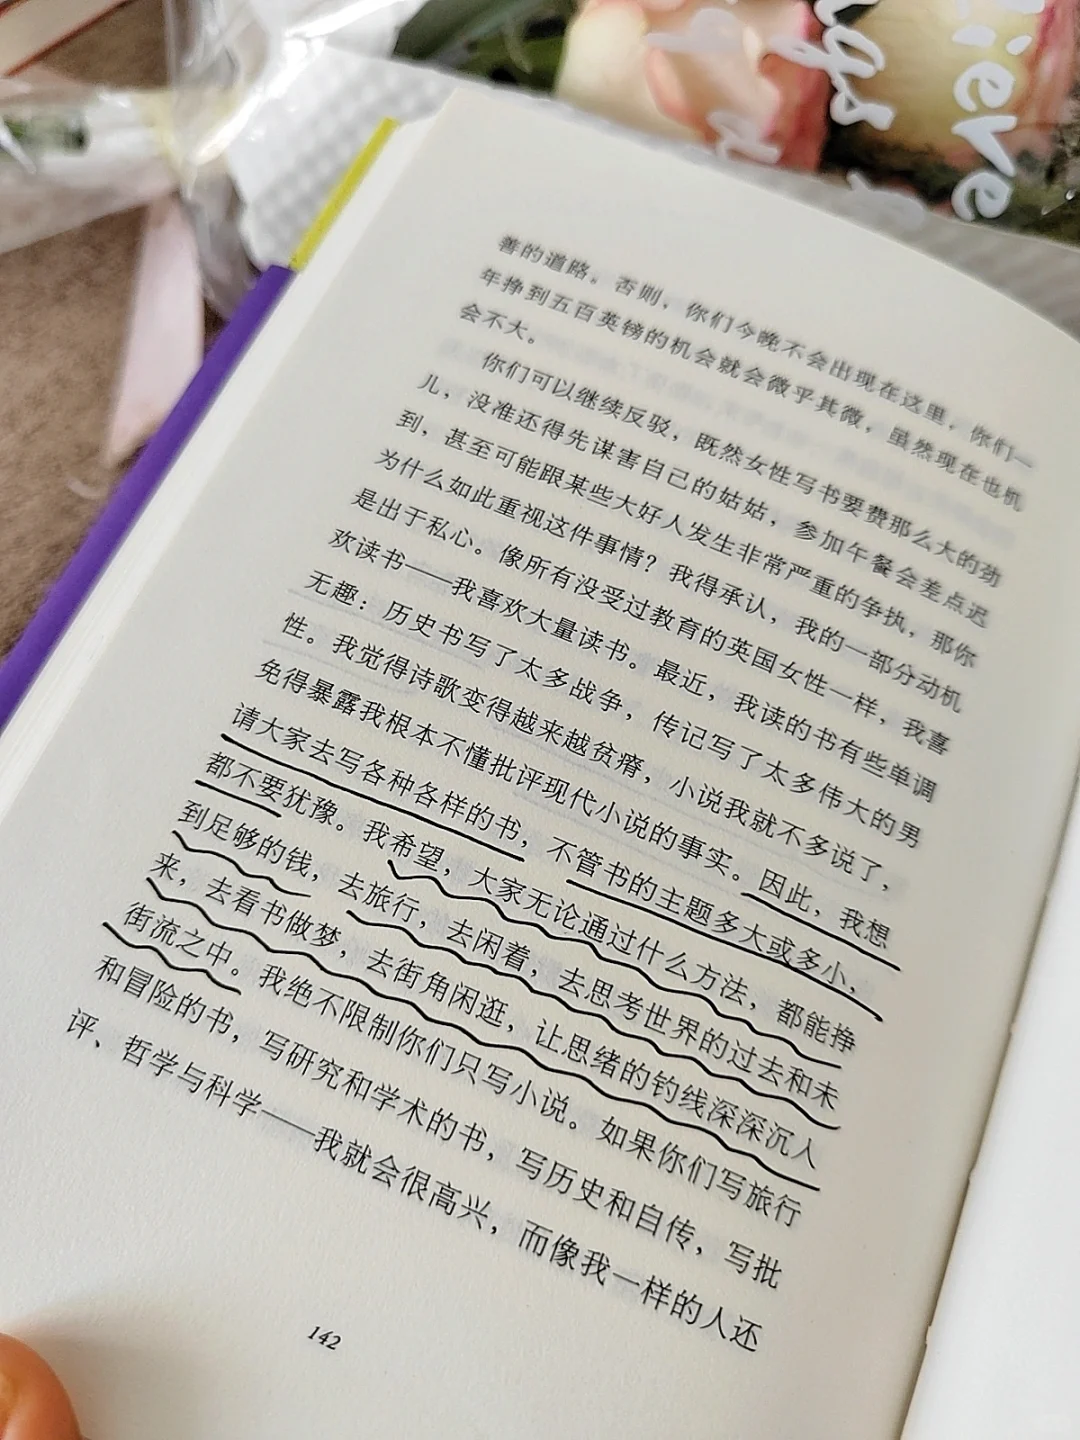 善的道路。否则，你们今晚不会出现在这里，你们一
年挣到五百英镑的机会就会微乎其微，虽然现在也机
会不大。
你们可以继续反驳，既然女性写书要费那么大的劲
儿，没准还得先谋害自己的姑姑，参加午餐会差点迟
到，甚至可能跟某些大好人发生非常严重的争执，那你
为什么如此重视这件事情？我得承认，我的一部分动机
是出于私心。像所有没受过教育的英国女性一样，我喜
欢读书——我喜欢大量读书。最近，我读的书有些单调
无趣：历史书写了太多战争，传记写了太多伟大的男
性。我觉得诗歌变得越来越贫瘠，小说我就不多说了，
免得暴露我根本不懂批评现代小说的事实。因此，我想
请大家去写各种各样的书，不管书的主题多大或多小，
都不要犹豫。我希望，大家无论通过什么方法，都能挣
到足够的钱，去旅行，去闲着，去思考世界的过去和未
来，去看书做梦，去街角闲逛，让思绪的钓线深深沉入
街流之中。我绝不限制你们只写小说。如果你们写旅行
和冒险的书，写研究和学术的书，写历史和自传，写批
评、哲学与科学——我就会很高兴，而像我一样的人还
142